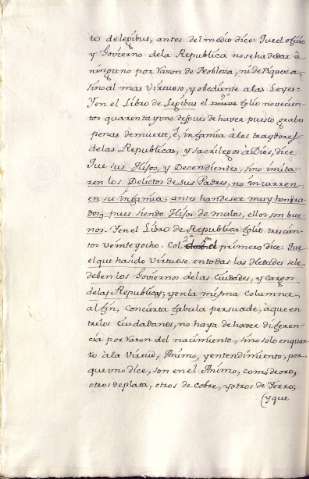 tro de legibus, antes del medio dice: Que el oficio
y Govierno dela Republica no se ha de dar à
ninguno por razon de Nobleza, ni de riqueza,
sino al mas Virtuoso, y obediente a las Leyes:
Y en el Libro de Legibus el folio novecien-
tos quarenta y uno despues de haver puesto graves
penas de muerte, è, infamia à los traydores
de las Republicas, y sacrilegos à Dios, dice
Que sus Hijos, y Descendientes, sino imita-
ren los Delictos de sus Padres, no incurren
en su infamia, antes han de ser muy honra-
dos, pues siendo Hijos de malos, ellos son bue-
nos. Y en el Libro de Republica folio trescien-
tos veinte y ocho. Col. primero dice: Que
el que ha sido Virtuoso en todas las Hedades se le
deben los Goviernos de las Ciudades, y Cargos
de las Republicas; y en la misma columna,
al fin, Con cierta fabula persuade, a que en-
tre los Ciudadanos, no haya de haver diferen-
cia por razon del nacimiento, sino solo en quan-
to à la Virtud, Animo, y entendimiento; por-
que unos dice, son en el Animo, como de oro,
otros de plata, otros de Cobre, y otros de Yerro,
(y que